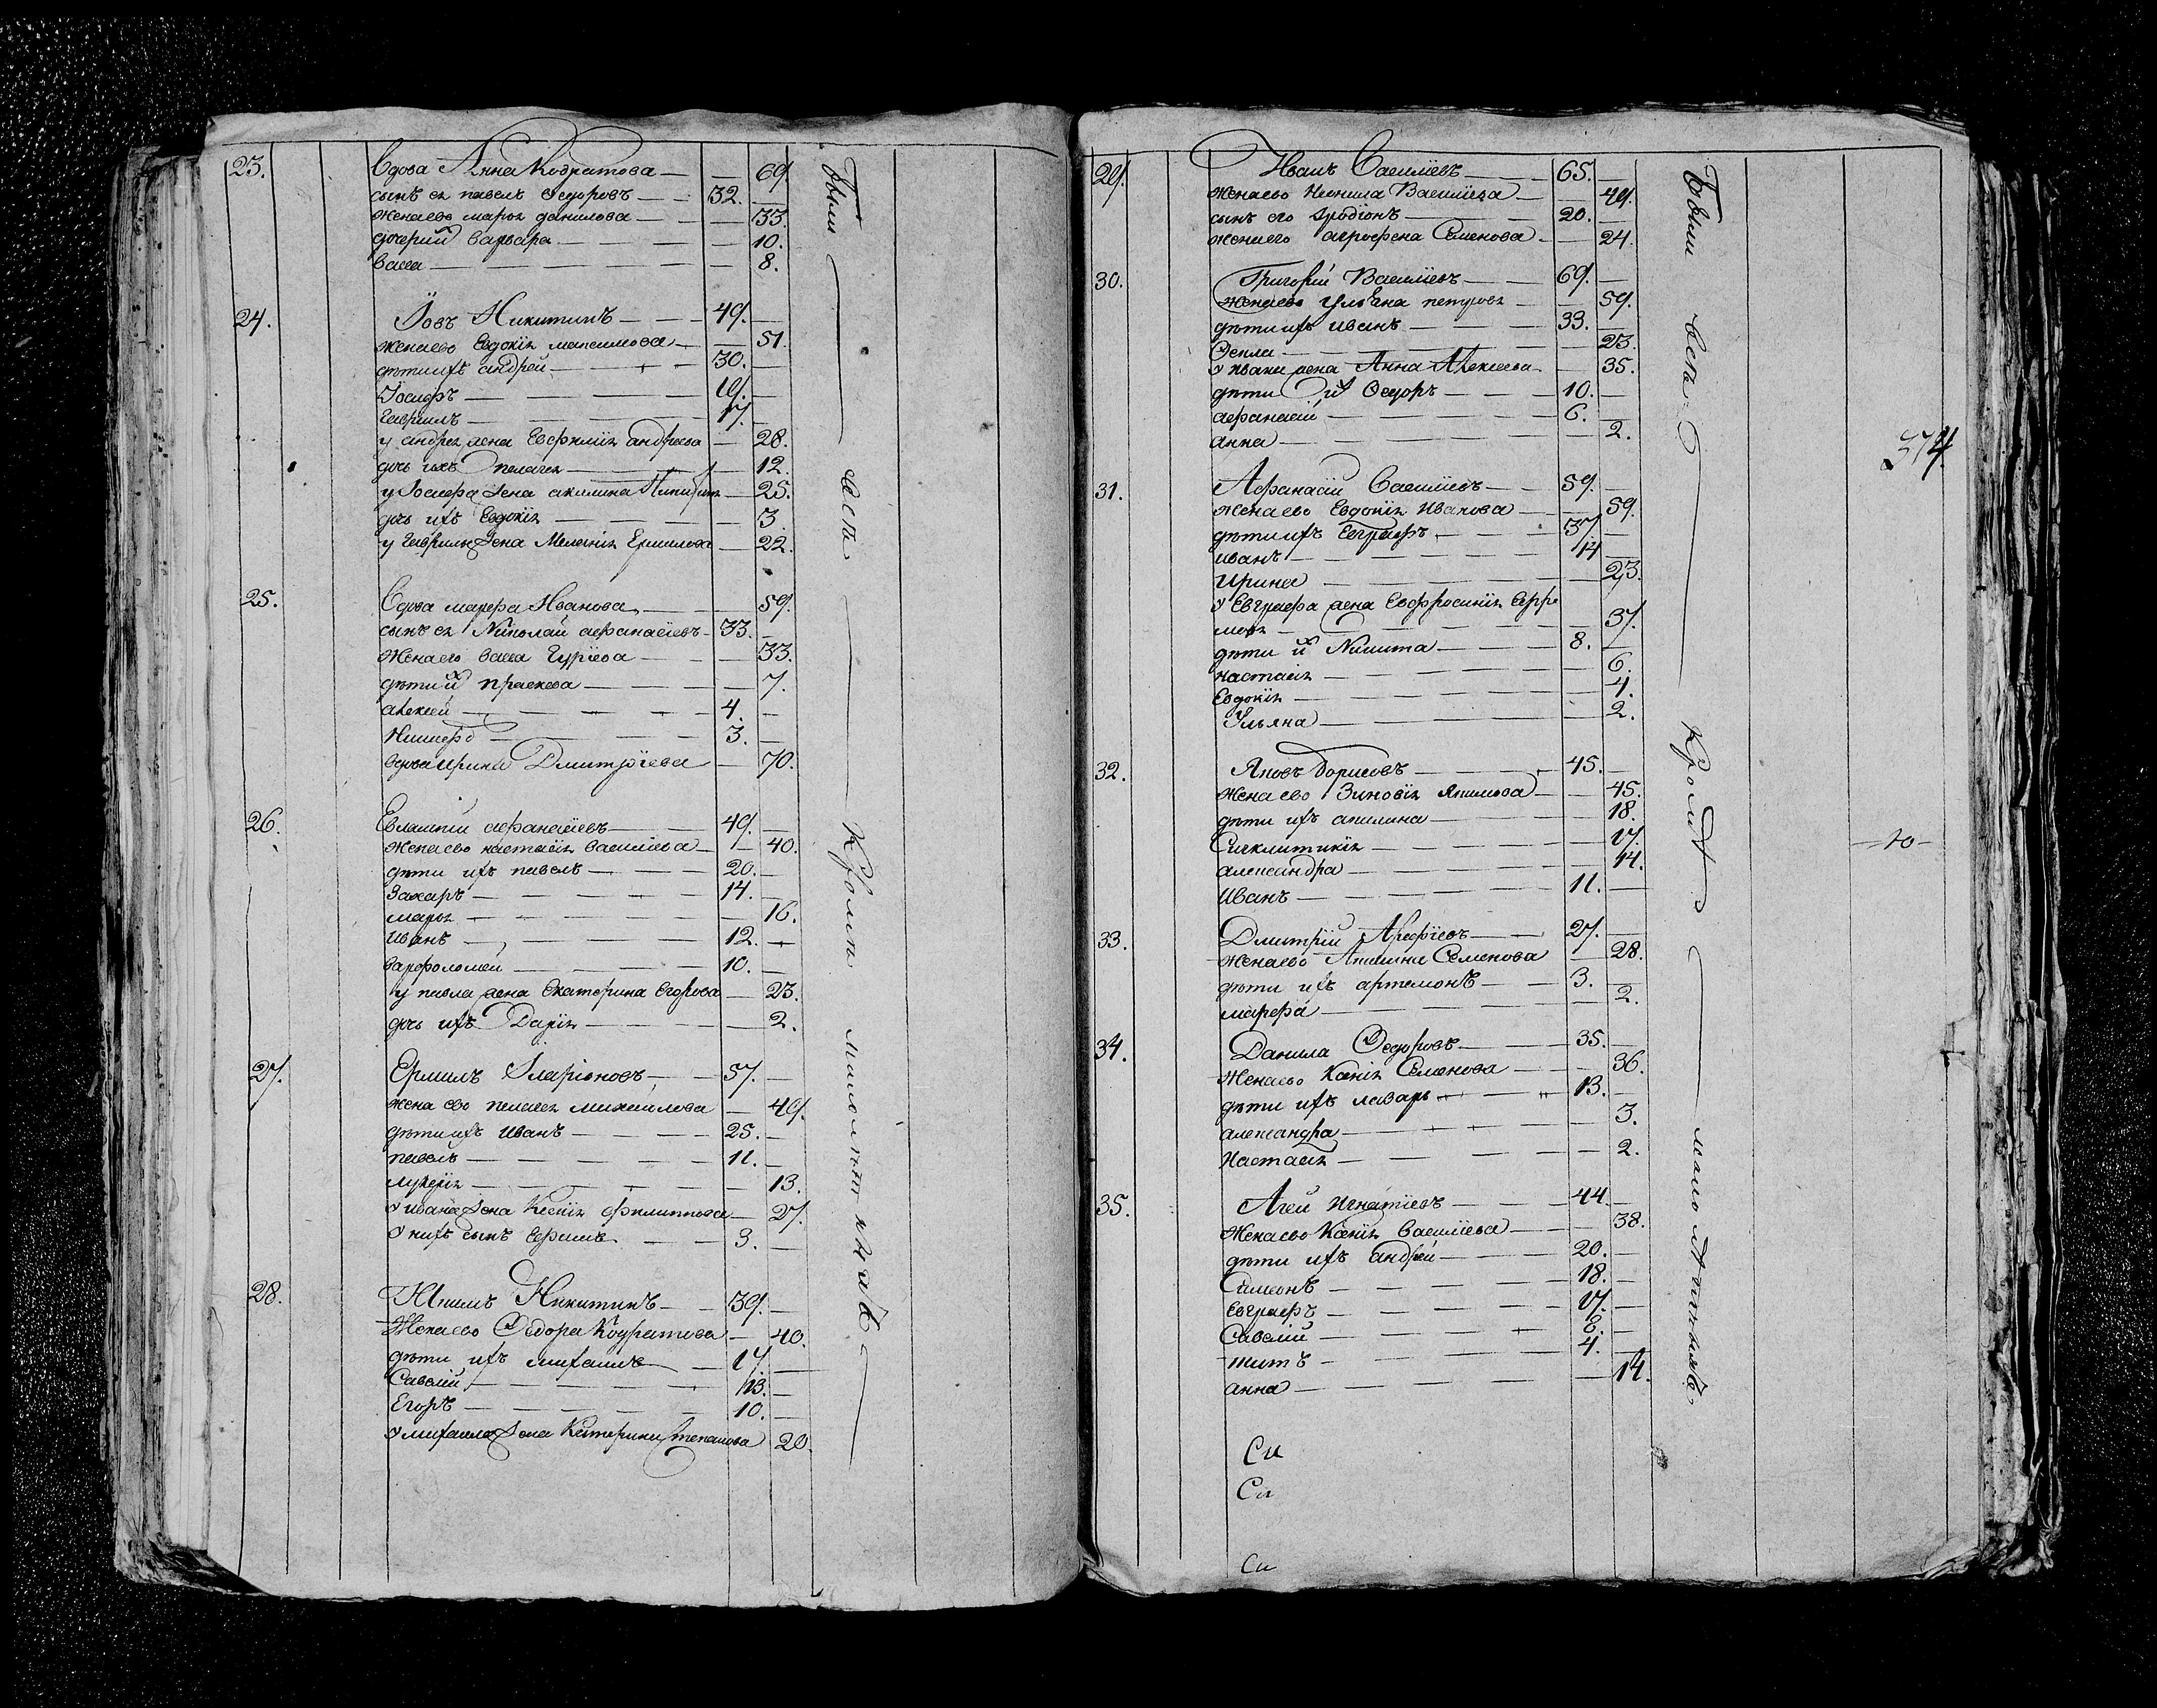 23. Вдова Анна Кодратова — — 69.
сынъ ея павелъ Ѳедоровъ — — 32. —
Женаево марья данилова — — — 33.
дочерий варвара — — — — — 10.
васса — — — — — 8.
24. Іовъ Никитинъ — — — 49. —
женаево Евдокія максимова — — 51.
дѣтиихъ андрей — — — 30. —
Іосифъ — — — — 19. —
Гаврилъ — — — — 17. —
у андрея жена Евфимія андреева — 28.
дочь ихъ пелагея — — — — 12.
у Іосифа жена акилина — 25.
дочь ихъ Евдокія — — — — 3.
у Гаврилы жена Меланія Ермилова — 22.
25. Вдова марфа Иванова — — — 59.
сынъ ея Николай афанасіевъ — 33. —
Женаего васса Гурїева — — — 33.
дѣтиих праскева — — — — 7.
алексей — — — — 4. —
Никифоръ — — — — 3. —
вдоваирина Дмитрїева — 70.
26. Евлампій афанасїевъ — — — 49. —
женаево настасія василіева — — 40.
дѣти ихъ павелъ — — — 20. —
Захаръ — — — — 14. —
марья — — — — — 16.
иванъ — — — — 12. —
варфоломей — — — — 10. —
у павла жена Екатерина Егорова — 23.
дочь ихъ Дарія — — — — 2.
27. Ермилъ Иларіоновъ — — 57. —
жена ево пелагея михаилова — 49.
дѣтиихъ иванъ — — — 25. —
павелъ — — — — 11. —
лукерія — — — — — 13.
у ивана жена Ксенія филиппова — 27.
у нихъ сынъ Ефимъ — — 3. —
28. Никитинъ — — 39. —
Женаево Ѳедора Кодратова — 40.
дѣти ихъ михаилъ — — 17 —
Савелій — — — — 13. —
Егоръ — — — — 10. —
у михаила жена Катерина Степанова 20.
Были — вси — у — Креста
29. Иванъ Василїевъ — — 65. —
женаево Неонила Василїева — — 49.
сынъ его Иродіонъ — — — 20. —
женаего агрофена Семенова — — 24.
30. Григорїй Василїевъ — — 69. —
женаево ульяна петрова — — 59.
дѣтиихъ иванъ — — — 33. —
Ѳекла — — — — — 23.
у ивана жена Анна Алексеева — — 35.
дѣти их Ѳедоръ — — — 10. —
афанасій — — — — 6. —
анна — — — — — 2.
31. Афанасїй Василїевъ — — 59. —
женаево Евдокія Иванова — — 59.
дѣтиихъ Евграфъ — — — 37. —
иванъ — — — — 14 —
Ирина — — — — — 23.
у Евграфа жена Евфросинія Ефре
мова — — — — 37.
дѣти их Никита — — — 8. —
настасія — — — — — 6.
Евдокія — — — — — 4.
Ульяна — — — — — 2.
32. Яковъ борисовъ — — — 45. —
женаево Зиновія Якимова — — 45.
дѣти ихъ акилина — — — — 18.
Сигклитикія — — — — — 17.
александра — — — — — 14.
Иванъ — — — — 11. —
33. Дмитрїй Арефїевъ — — 27. —
женаево Акилина Семенова — 28.
дѣти ихъ артемонъ — — 3. —
марфа — — — — — 2.
34. Данила Ѳедоровъ — — — 35. —
Женаево Ксенія Семенова — — 36.
дѣти ихъ лазарь — — — 13. —
александра — — — — — 3.
Настасія — — — — — 2.
35. Агей Игнатїевъ — — — 44 —
Женаево Ксенія Василїева — — 38.
дѣти ихъ андрей — — — 20. —
Симеонъ — — — — 18. —
Евграфъ — — — — 17. —
Савелій — — — — 8. —
титъ — — — — 4. —
анна — — — — — 14.
Си
Си
Си
Были вси Кромѣ малолѣтнихъ
374.
— 10 —